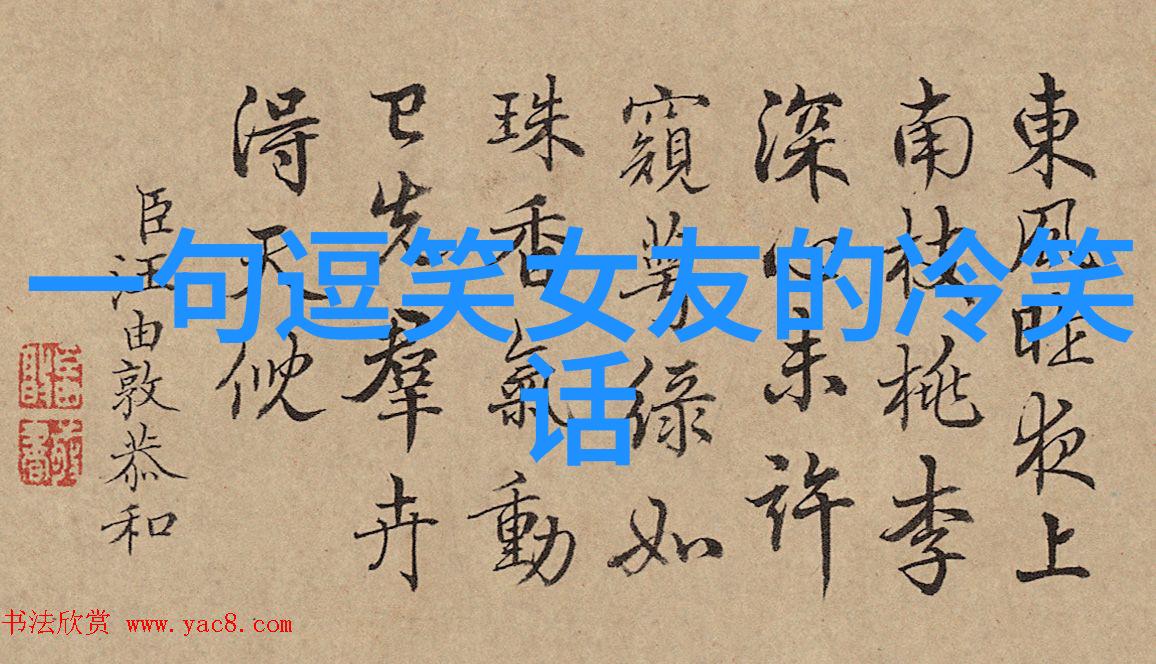 一句逗笑女友的冷笑
话
東風昨夜上
南枝桃李
深心未許
窺萼綠如
珠香氣動
已先羣卉
得天倪
臣汪由敦恭和
书法欣赏 www.yac8.com